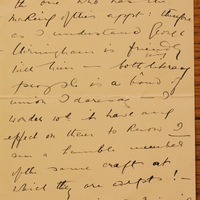 the one who has the
making of the appt: therefore
as I understand George
is friendly
with him — both literary
people is a bond of
union I daresay — I
wonder wd it have any
effect on them to know I
am a humble member
of the same craft at
which they are adepts! —